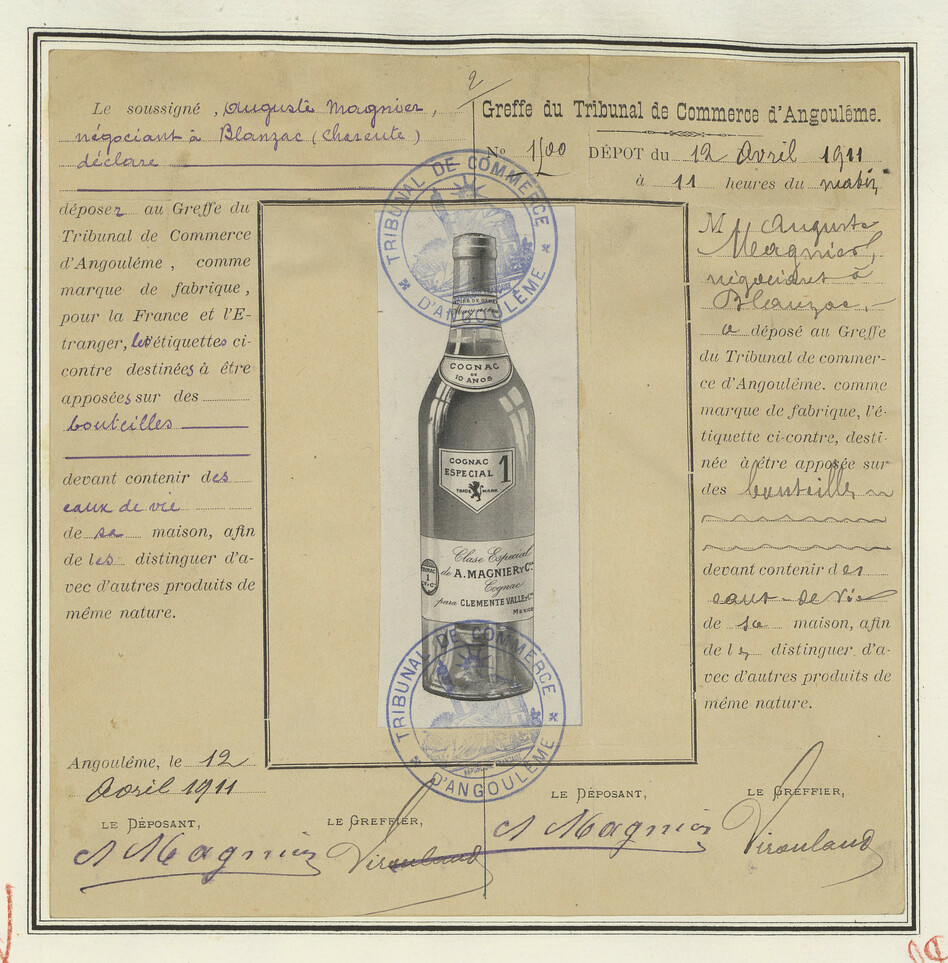 2
Le soussigné, Auguste Magnier,
négociant à Blanzac (Charente)
déclare
déposer au Greffe du
Tribunal de Commerce
d'Angoulême, comme
marque de fabrique,
pour la France et l'E-
tranger, les étiquettes ci-
contre destinées à être
apposées sur des
bouteilles
devant contenir des
eaux de vie
de sa maison, afin
de les distinguer d'a-
vec d'autres produits de
même nature.
Angoulême, le 12
Avril 1911
LE DÉPOSANT,
LE GREFFIER,
A Magnier
Virouland
TRIBUNAL DE COMMERCE
D'ANGOULÊME
COGNAC
DE
10 AÑOS
COGNAC
ESPECIAL 1
TRADE MARK
Clase Especial
de A. MAGNIER Y Cia
Cognac
para CLEMENTE VALLE y Cia
MEXICO
COGNAC
1
TRIBUNAL DE COMMERCE
RÉPUBLIQUE FRANÇAISE
D'ANGOULÊME
Greffe du Tribunal de Commerce d'Angoulême.
No 1500 DÉPOT du 12 Avril 1911
à 11 heures du matin
M Auguste
Magnier,
négociant à
Blanzac,
a déposé au Greffe
du Tribunal de commer-
ce d'Angoulême. comme
marque de fabrique, l'é-
tiquette ci-contre, desti-
née à être apposée sur
des bouteilles
devant contenir des
eaux-de-vie
de sa maison, afin
de les distinguer d'a-
vec d'autres produits de
même nature.
LE DÉPOSANT,
LE GREFFIER,
A Magnier
Virouland